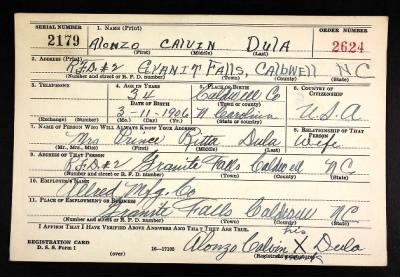 SERIAL NUMBER 1. NAME (Print) ORDER NUMBER
2179 Alonzo Calvin Dula 2624
(First) (Middle) (Last)
2. ADDRESS (Print)
R.F.D.#2 Granit Falls, Caldwell NC
(Number and street or R. F. D. number) (Town) (County) (State)
3. TELEPHONE 4. AGE IN YEARS 5. PLACE OF BIRTH 6. COUNTRY OF CITIZENSHIP
34 Caldwell Co
DATE OF BIRTH (Town or county)
3-11-1906 N Carolina U.S.A
(Exchange) (Number) (Mo.) (Day) (Yr.) (State or country)
7. NAME OF PERSON WHO WILL ALWAYS KNOW YOUR ADDRESS 8. RELATIONSHIP OF THAT PERSON
Mrs Prince Ritta Dula Wife
(Mr., Mrs., Miss) (First) (Middle) (Last)
9. ADDRESS OF THAT PERSON
R.F.D.#2 Granite Falls Caldwell NC
(Number and street or R. F. D. number) (Town) (County) (State)
10. EMPLOYER'S NAME
Mfg. Co
11. PLACE OF EMPLOYMENT OR BUSINESS
Granite Falls Caldwell NC
(Number and street or R. F. D. number) (Town) (County) (State)
I AFFIRM THAT I HAVE VERIFIED ABOVE ANSWERS AND THAT THEY ARE TRUE.
his
REGISTRATION CARD
D. S. S. Form 1 16-17105 Alonzo Calvin X Dula
(Registrant's signature) mark